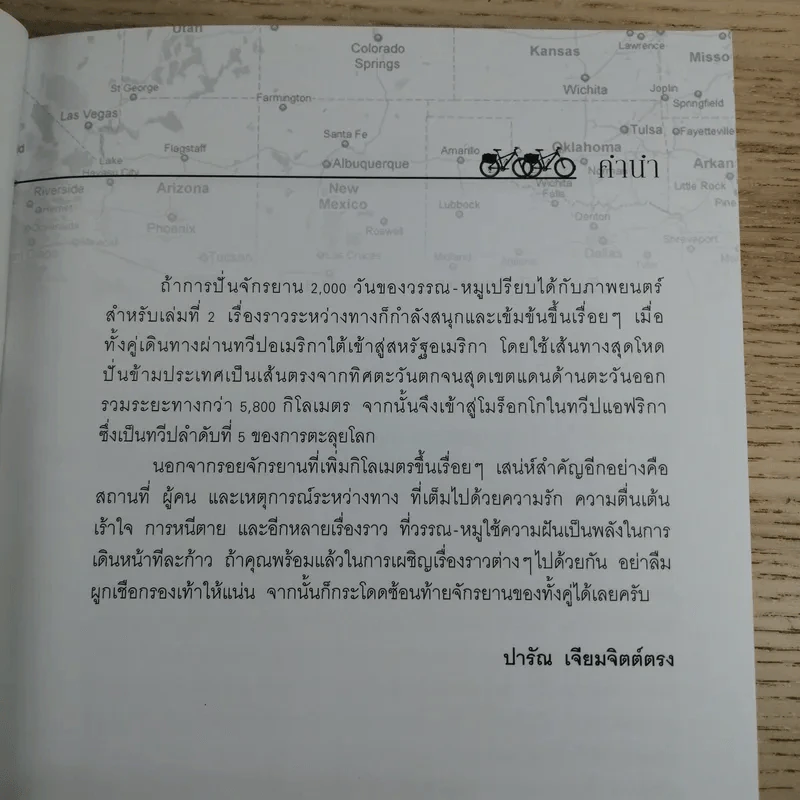 Utah
Colorado Springs
Kansas
Lawrence
Misso
St George
Wichita
Joplin
Springfield
Las Vegas
Farmington
Santa Fe
Tulsa
Fayetteville
Flagstaff
Albuquerque
Amarillo
Oklahoma
คำนำ
Lake Havasu City
Arkan
Riverside
Arizona
New Mexico
Wichita Falls
Little Rock
Pine
Lubbock
Phoenix
Roswell
Denton
Shreveport
Tucson
Las Cruces
Midland
Dallas
ถ้าการปั่นจักรยาน 2,000 วันของวรรณ-หมูเปรียบได้กับภาพยนตร์
สำหรับเล่มที่ 2 เรื่องราวระหว่างทางก็กำลังสนุกและเข้มข้นขึ้นเรื่อยๆ เมื่อ
ทั้งคู่เดินทางผ่านทวีปอเมริกาใต้เข้าสู่สหรัฐอเมริกา โดยใช้เส้นทางสุดโหด
ปั่นข้ามประเทศเป็นเส้นตรงจากทิศตะวันตกจนสุดเขตแดนด้านตะวันออก
รวมระยะทางกว่า 5,800 กิโลเมตร จากนั้นจึงเข้าสู่โมร็อกโกในทวีปแอฟริกา
ซึ่งเป็นทวีปลำดับที่ 5 ของการตะลุยโลก
นอกจากรอยจักรยานที่เพิ่มกิโลเมตรขึ้นเรื่อยๆ เสน่ห์สำคัญอีกอย่างคือ
สถานที่ ผู้คน และเหตุการณ์ระหว่างทาง ที่เต็มไปด้วยความรัก ความตื่นเต้น
เร้าใจ การหนีตาย และอีกหลายเรื่องราว ที่วรรณ-หมูใช้ความฝันเป็นพลังในการ
เดินหน้าทีละก้าว ถ้าคุณพร้อมแล้วในการเผชิญเรื่องราวต่างๆไปด้วยกัน อย่าลืม
ผูกเชือกรองเท้าให้แน่น จากนั้นก็กระโดดซ้อนท้ายจักรยานของทั้งคู่ได้เลยครับ
ปารัณ เจียมจิตต์ตรง